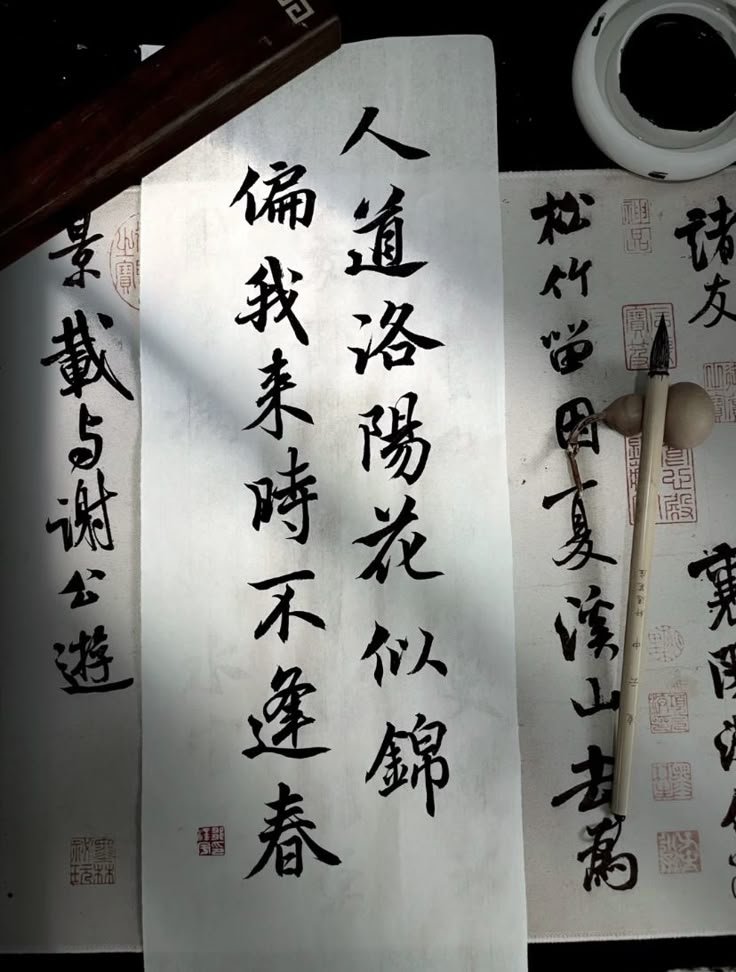 諸友 襄陽漫
松竹留因夏溪山去為
人道洛陽花似錦
偏我来時不逢春
景載与謝公遊